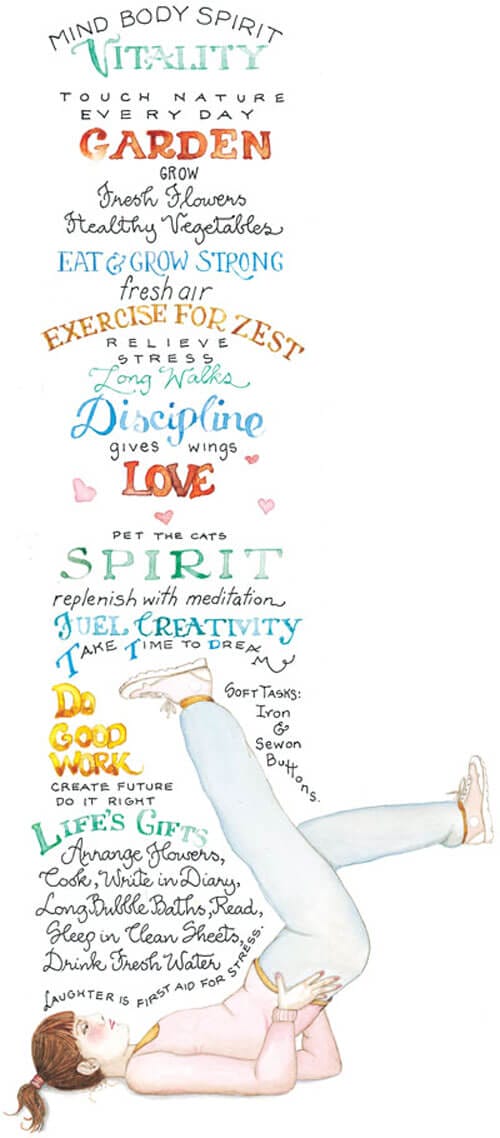 MIND BODY SPIRIT
VITALITY
TOUCH NATURE
EVERY DAY
GARDEN
GROW
Fresh Flowers
Healthy Vegetables
EAT & GROW STRONG
fresh air
EXERCISE FOR ZEST
RELIEVE
STRESS
Long Walks
Discipline
gives wings
LOVE
PET THE CATS
SPIRIT
replenish with meditation
FUEL CREATIVITY
TAKE TIME TO DREAM
SOFT TASKS:
Iron
&
Sew on
Buttons.
DO
GOOD
WORK
CREATE FUTURE
DO IT RIGHT
LIFE'S GIFTS
Arrange Flowers,
Cook, Write in Diary,
Long Bubble Baths, Read,
Sleep in Clean Sheets,
Drink Fresh Water
LAUGHTER IS FIRST AID FOR STRESS.